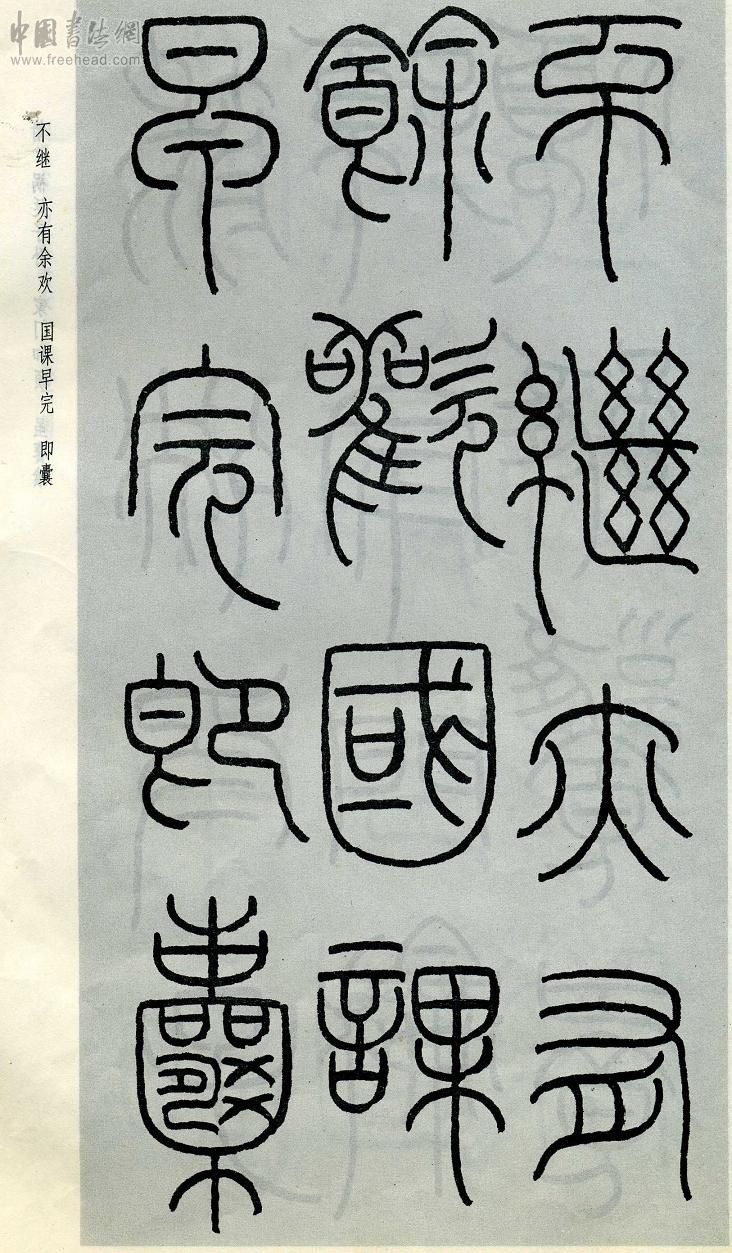 中国书法網
www.freehead.com
不继 亦有余欢 国课早完 即囊
不繼亦有
餘歡國課
早完即囊